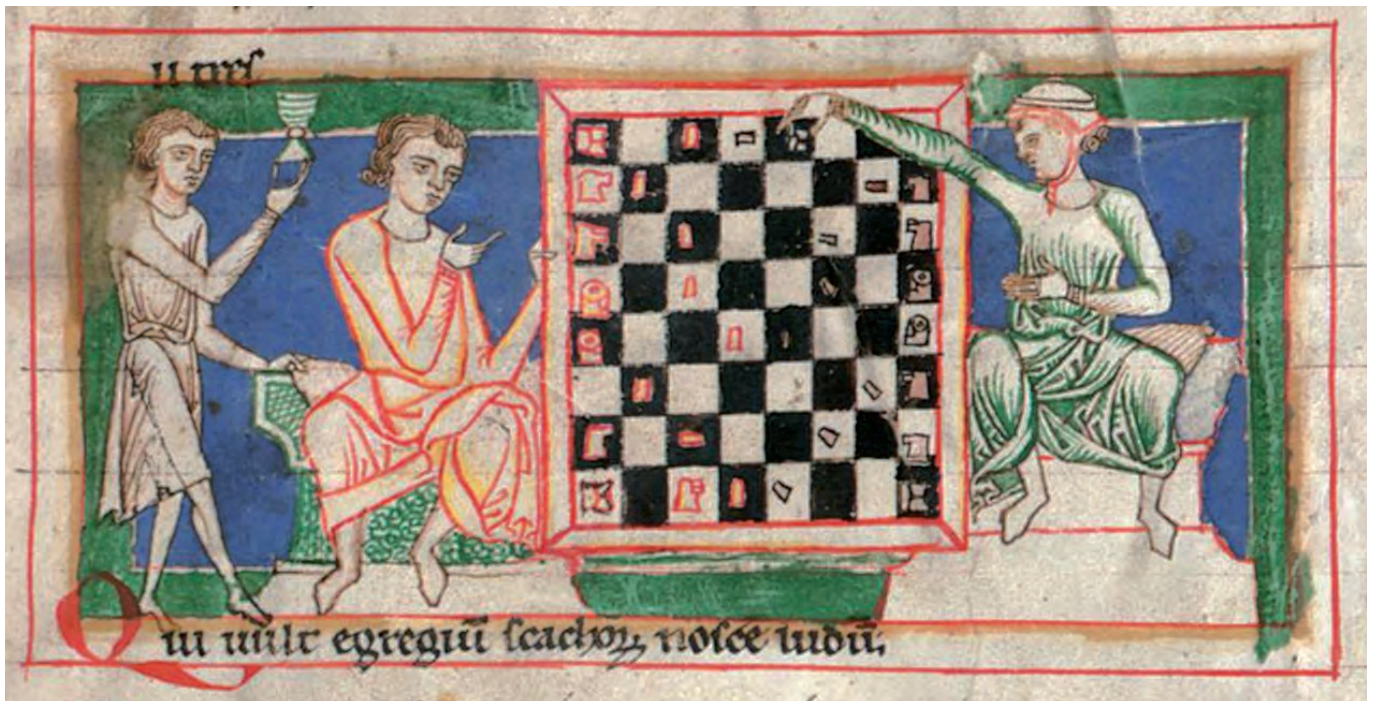 Qui uult egregiū scachoꝝ nosce ludū;